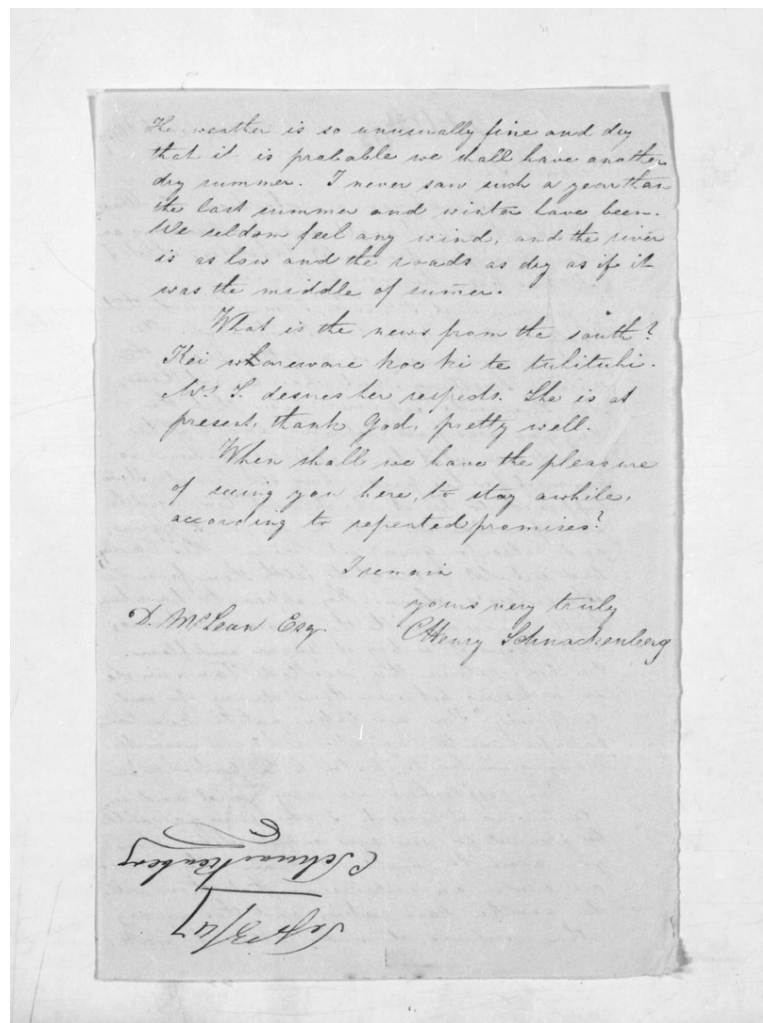 The weather is so unusually fine and dry
that it is probable we shall have another
dry summer. I never saw such a year than
the last summer and winter have been.
We seldom feel any wind, and the river
is as low and the roads as dry as if it
was the middle of sumer.
What is the news from the south?
Kei whareware koe ki te tuhituhi.
Mrs S. desires her respects. She is at
present, thank God, pretty well.
When shall we have the pleasure
of seeing you here, to stay awhile,
according to repeated promises?
I remain
yours very truly
D. McLean Esq. CHenry Schnackenberg
C Schnackenberg
Sept 3/47